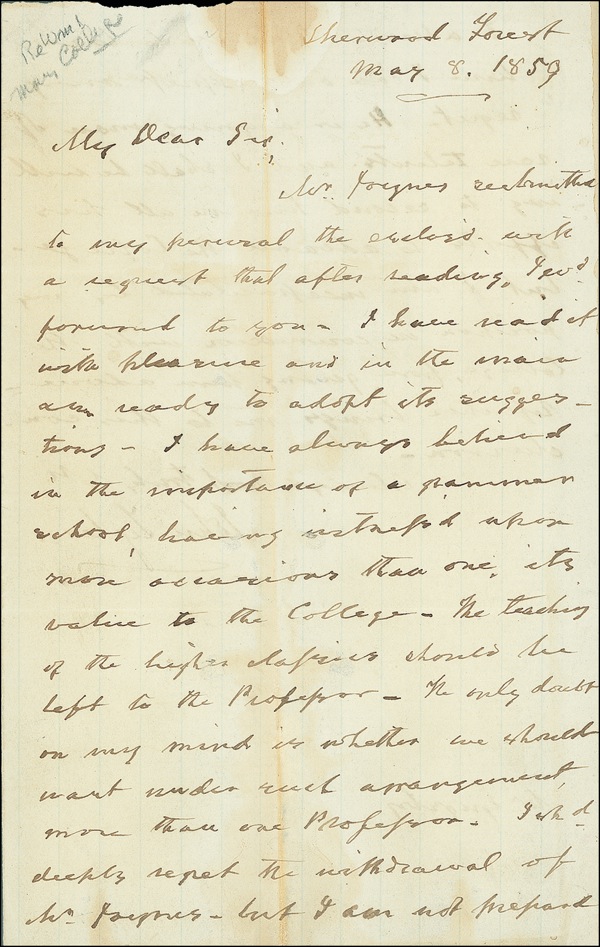 Return'd
Mary College
Sherwood Forest
May 8. 1859
My Dear Sir,
Mr. Joynes submitted
to my perusal the enclos'd. with
a request that after reading, I wd.
forward to you - I have read it
with pleasure and in the main
am ready to adopt its sugges-
tions - I have always believ'd
in the importance of a grammar
school, having witness'd upon
more occasions than one, its
value to the College - The teaching
of the higher classics should be
left to the Professor - The only doubt
on my mind is whether we should
want under such arrangement,
more than one Professor - I shd.
deeply regret the withdrawal of
Mr. Joynes - but I am not prepared